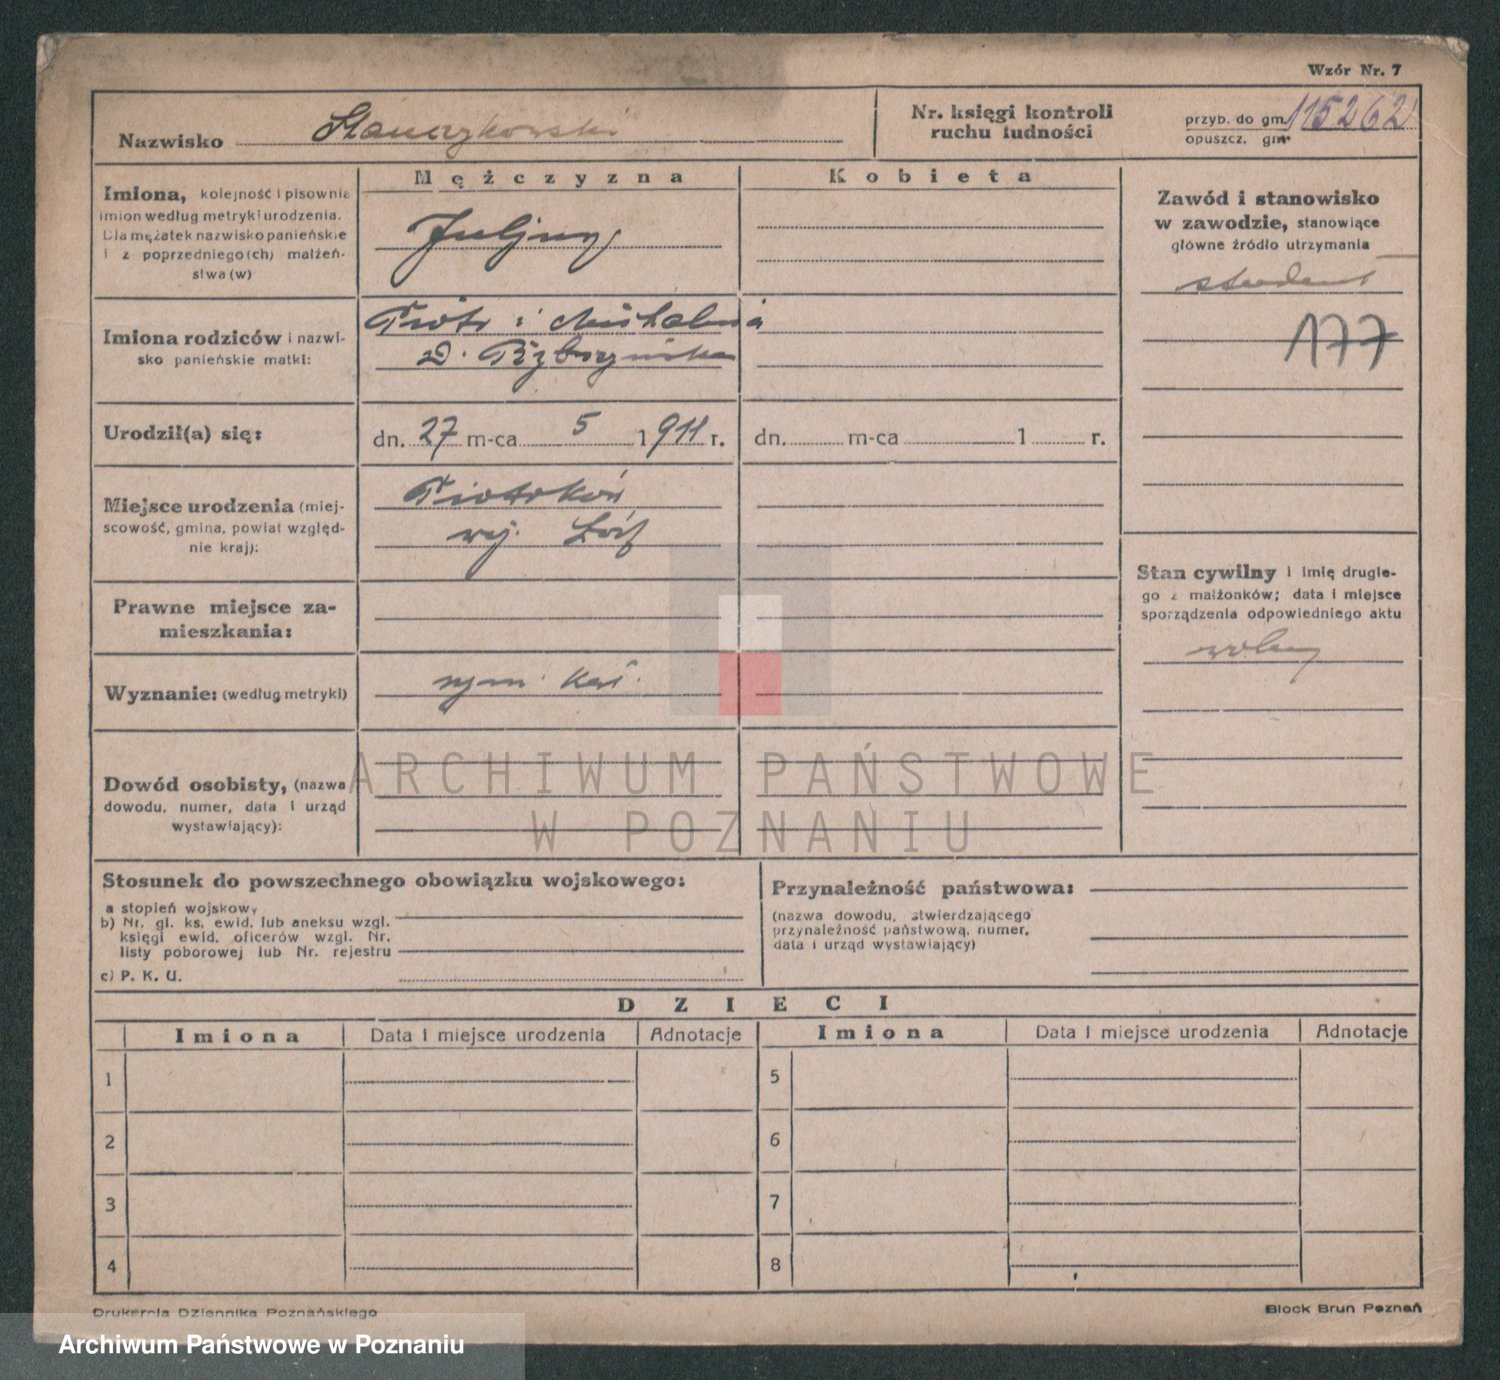 Wzór Nr. 7
Nazwisko Stanczykowski
Nr. księgi kontroli
ruchu ludności
przyb. do gm. 115262
opuszcz. gm.
Imiona, kolejność i pisownia
imion według metryki urodzenia.
Dla mężatek nazwisko panieńskie
i z poprzedniego(ch) małżeń-
stwa(w)
Mężczyzna
Kobieta
Zawód i stanowisko
w zawodzie, stanowiące
główne źródło utrzymania
student
177
Imiona rodziców i nazwi-
sko panieńskie matki:
Piotr i Michalina
Urodził(a) się:
dn. 27 m-ca 5 1911 r.
dn. m-ca 1 r.
Miejsce urodzenia (miej-
scowość, gmina, powiat względ-
nie kraj):
Piotrków
woj. Łódź
Prawne miejsce za-
mieszkania:
Stan cywilny i imię drugie-
go z małżonków; data i miejsce
sporządzenia odpowiedniego aktu
wolny
Wyznanie: (według metryki)
rzym. kat.
Dowód osobisty, (nazwa
dowodu, numer, data i urząd
wystawiający):
ARCHIWUM PAŃSTWOWE
W POZNANIU
Stosunek do powszechnego obowiązku wojskowego:
a stopień wojskowy
b) Nr. gl. ks. ewid. lub aneksu wzgl.
księgi ewid. oficerów wzgl. Nr.
listy poborowej lub Nr. rejestru
c) P. K. U.
Przynależność państwowa:
(nazwa dowodu, stwierdzającego
przynależność państwową, numer,
data i urząd wystawiający)
DZIECI
Imiona Data i miejsce urodzenia Adnotacje Imiona Data i miejsce urodzenia Adnotacje
1 5
2 6
3 7
4 8
Drukarnia Dziennika Poznańskiego
Block Brun Poznań
Archiwum Państwowe w Poznaniu